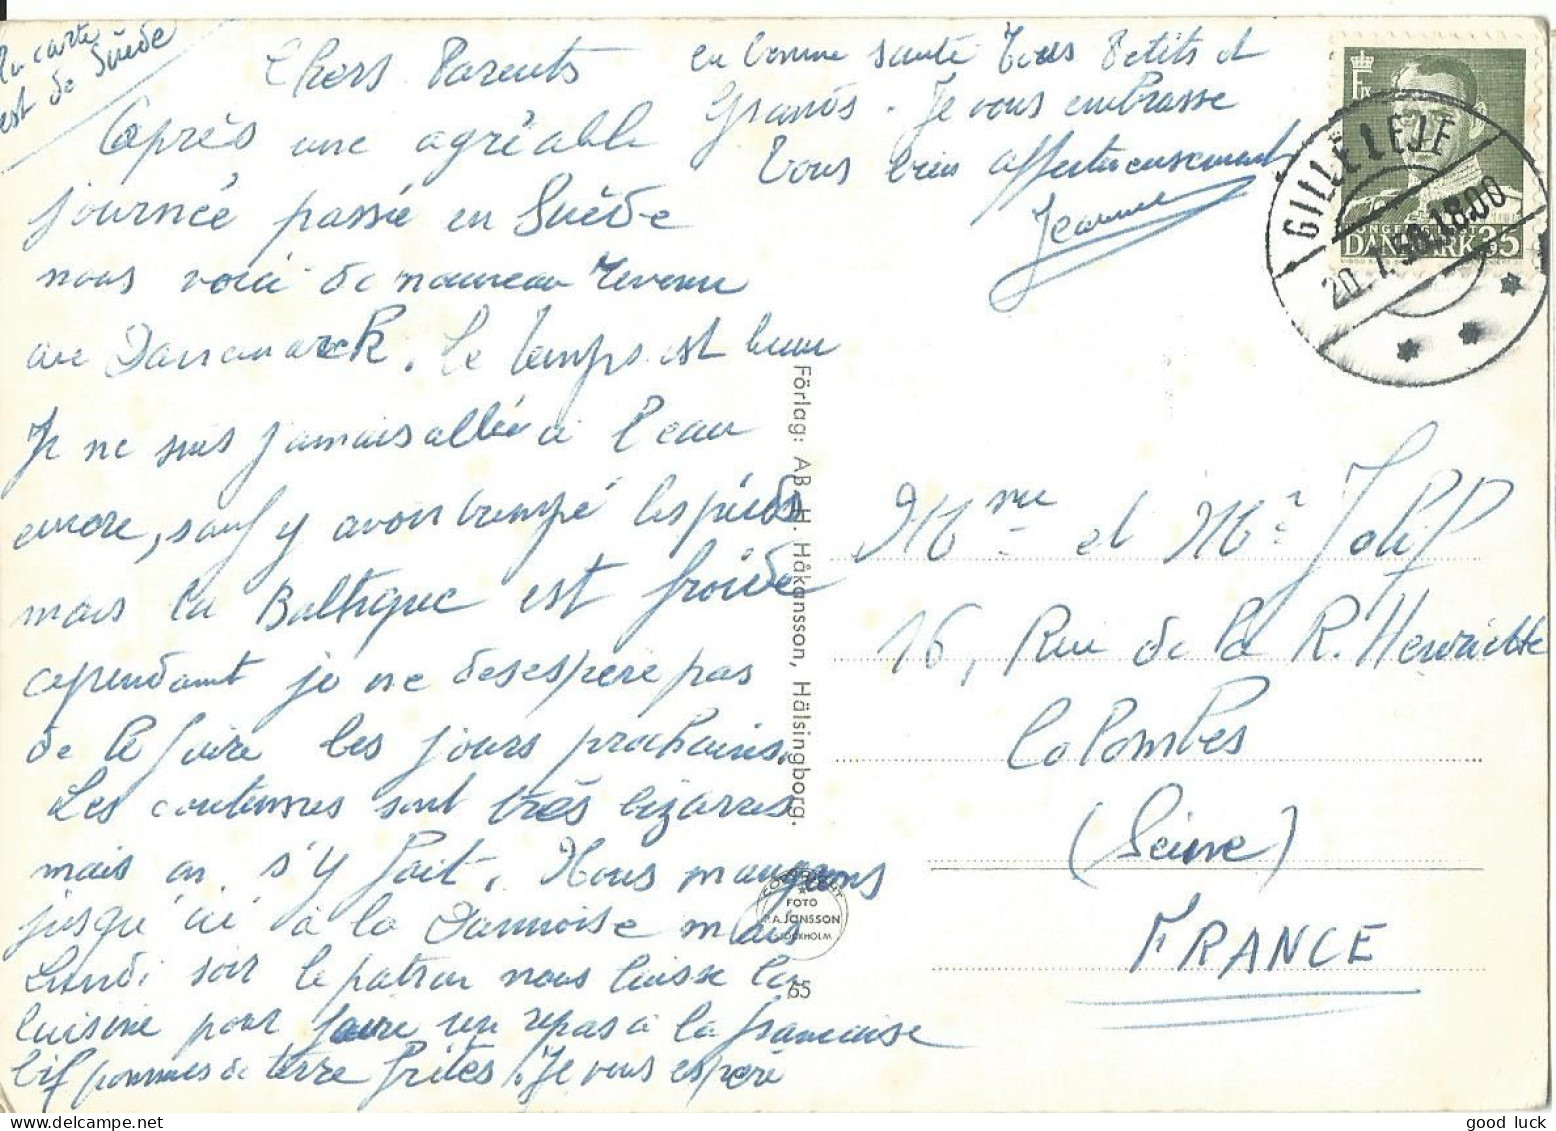 La carte
est de Suède
Chers Parents
Après une agréable
journée passée en Suède
nous voici de nouveau revenu
au Danemarck. Le temps est beau
Je ne suis jamais allée à l'eau
encore, sauf y avoir trempé les pieds
mais la Baltique est froide
cependant je ne desespère pas
de le faire les jours prochains.
Les coutumes sont très bizarres
mais on s'y fait. Nous mangeons
jusqu'ici à la Dannoise mais
Lundi soir le patron nous laisse la
cuisine pour faire un repas à la française
bif pommes de terre frites. Je vous espère
en bonne santé Tous Petits et
Grands. Je vous embrasse
Tous bien affectueusement
Jeanne
GILLELEJE
20.7.50.18.00
DANMARK 35
Mme et Mr Jolif
16, Rue de la R. Henriette
Colombes
(Seine)
FRANCE
Förlag: AB H. Håkansson, Hälsingborg.
COPYRIGHT
FOTO
A. JONSSON
STOCKHOLM
65
good luck